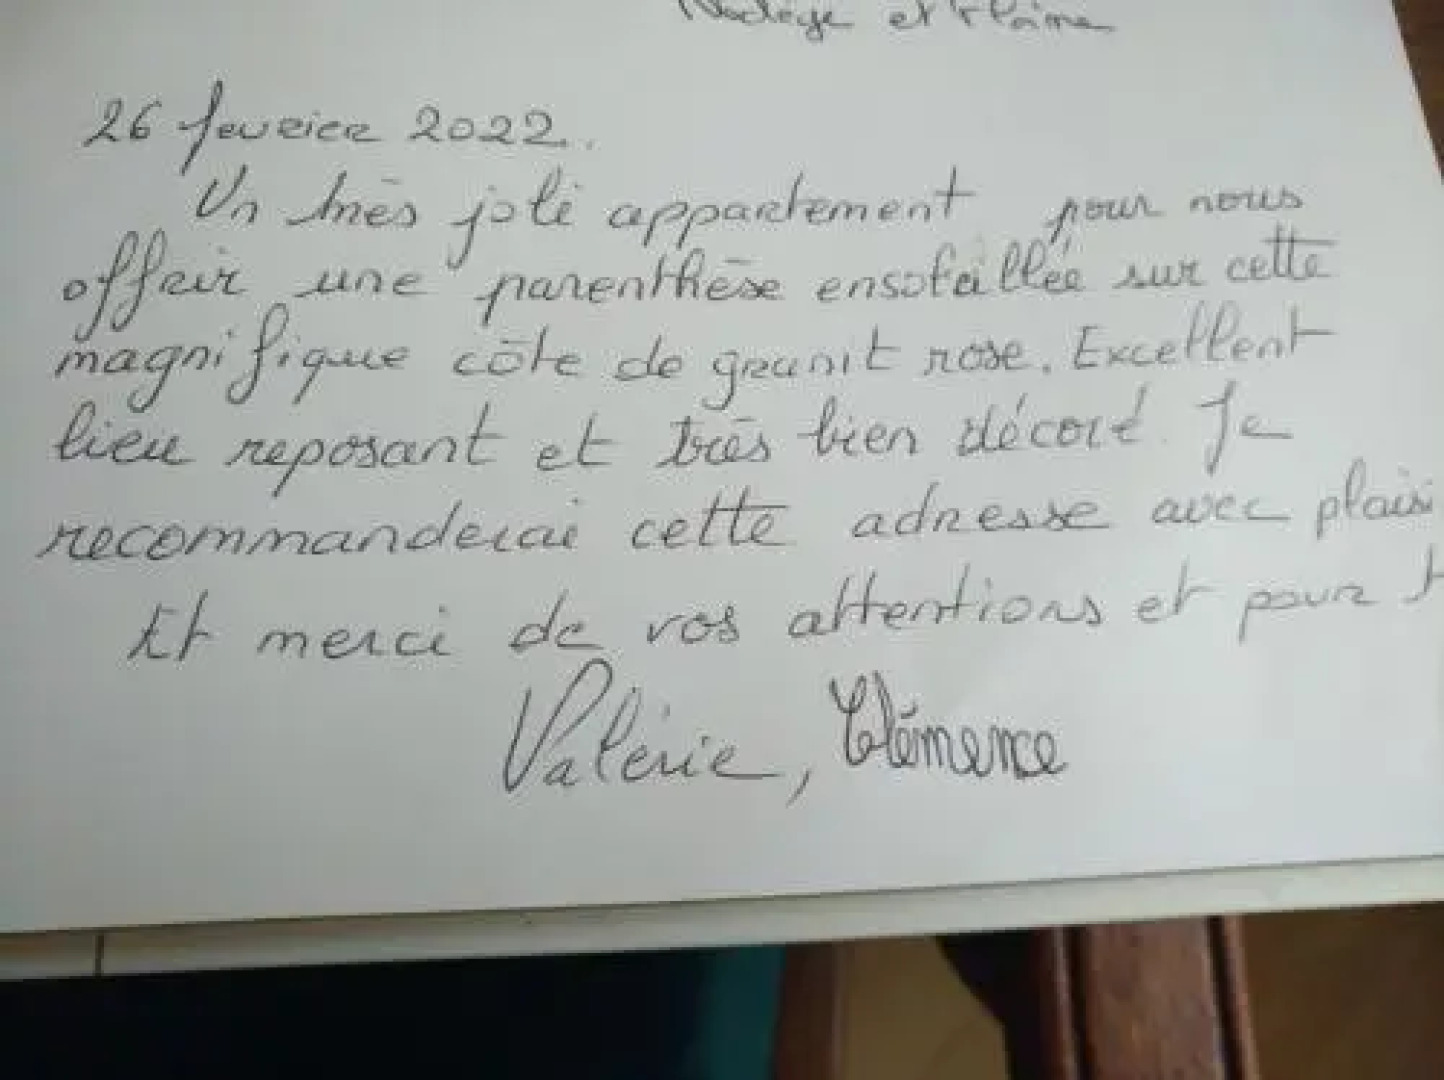 et
26 fevrier 2022.
Un très joli appartement pour nous
offrir une parenthèse ensoleillée sur cette
magnifique côte de granit rose. Excellent
lieu reposant et très bien décoré. Je
recommanderai cette adresse avec plaisi
Et merci de vos attentions et pour
Valérie, Clémence